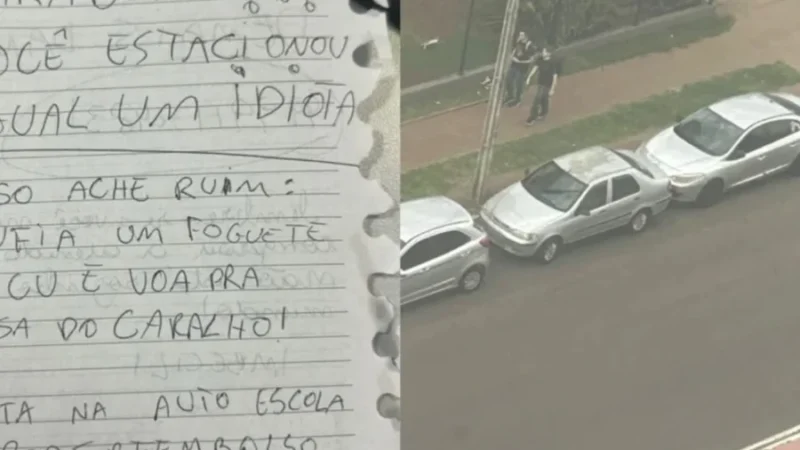 OCÊ ESTACIONOU
GUAL UM IDIOTA
SO ACHE RUIM:
FIA UM FOGUETE
CU E VOA PRA
SA DO CARALHO!
TA NA AUTO ESCOLA